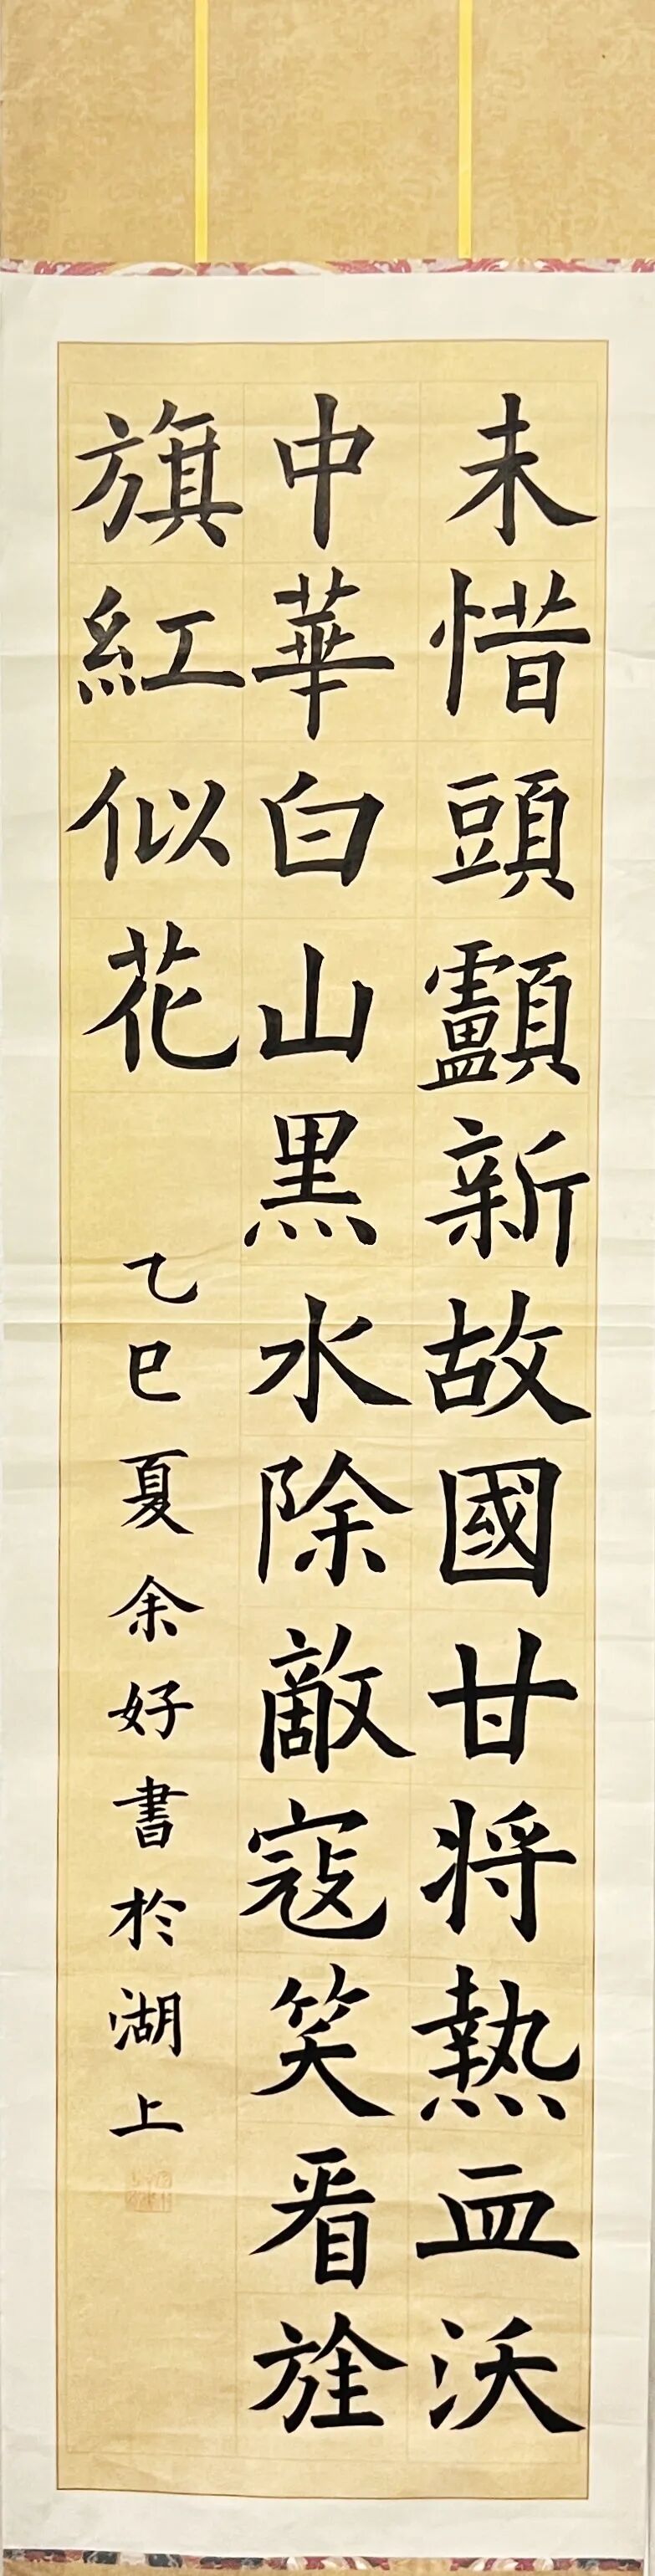 未惜頭顱新故國甘将熱血沃
中華白山黑水除敵寇笑看旌
旗紅似花
乙巳夏余好書於湖上